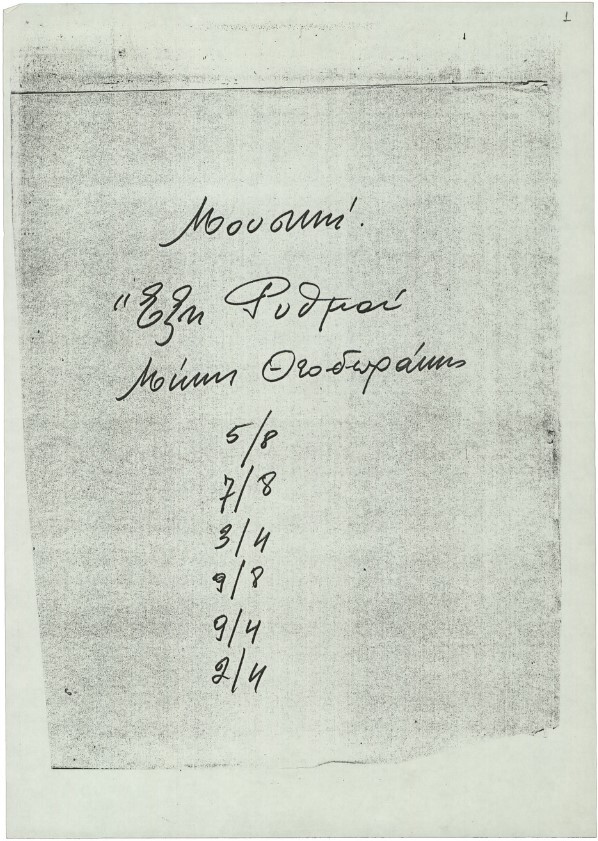 1
Μουσική.
"Έξη Ρυθμοί
Μίκης Θεοδωράκης
5/8
7/8
3/4
9/8
9/4
2/4